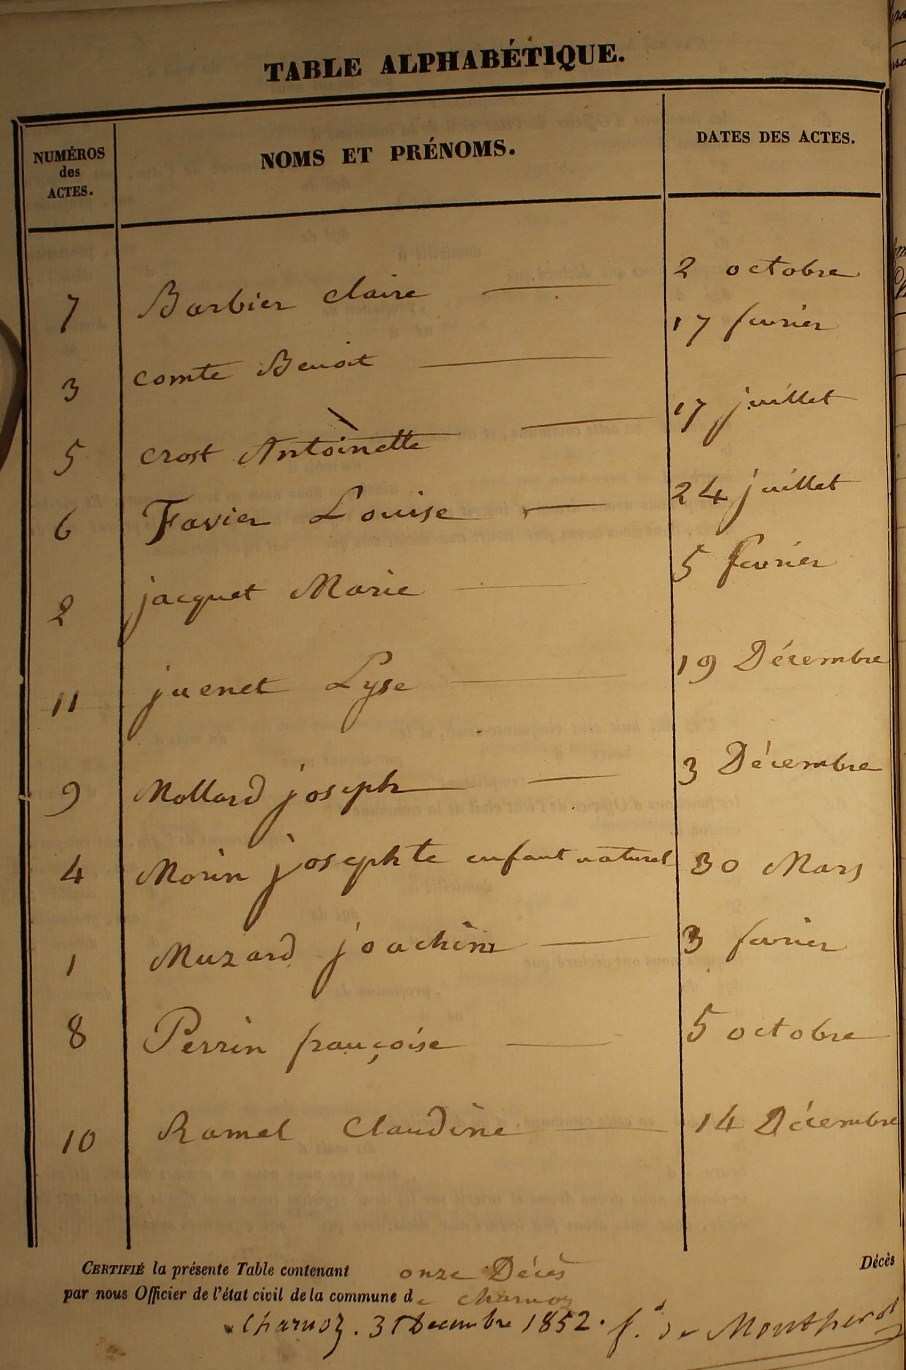 TABLE ALPHABÉTIQUE.
NUMÉROS des ACTES. NOMS ET PRÉNOMS. DATES DES ACTES.
7 Barbier claire 2 octobre
3 comte Benoit 17 fevrier
5 crost Antoinette 17 juillet
6 Favier Louise 24 juillet
2 jacquet Marie 5 fevrier
11 juenet Lyse 19 Décembre
9 Mollard joseph 3 Décembre
4 Morin josephte enfant naturel 30 Mars
1 Muzard joachim 3 fevrier
8 Perrin françoise 5 octobre
10 Ramel Claudine 14 Décembre
CERTIFIÉ la présente Table contenant onze Décès Décès
par nous Officier de l'état civil de la commune de Charnoz
Charnoz. 31 Decembre 1852. f. de